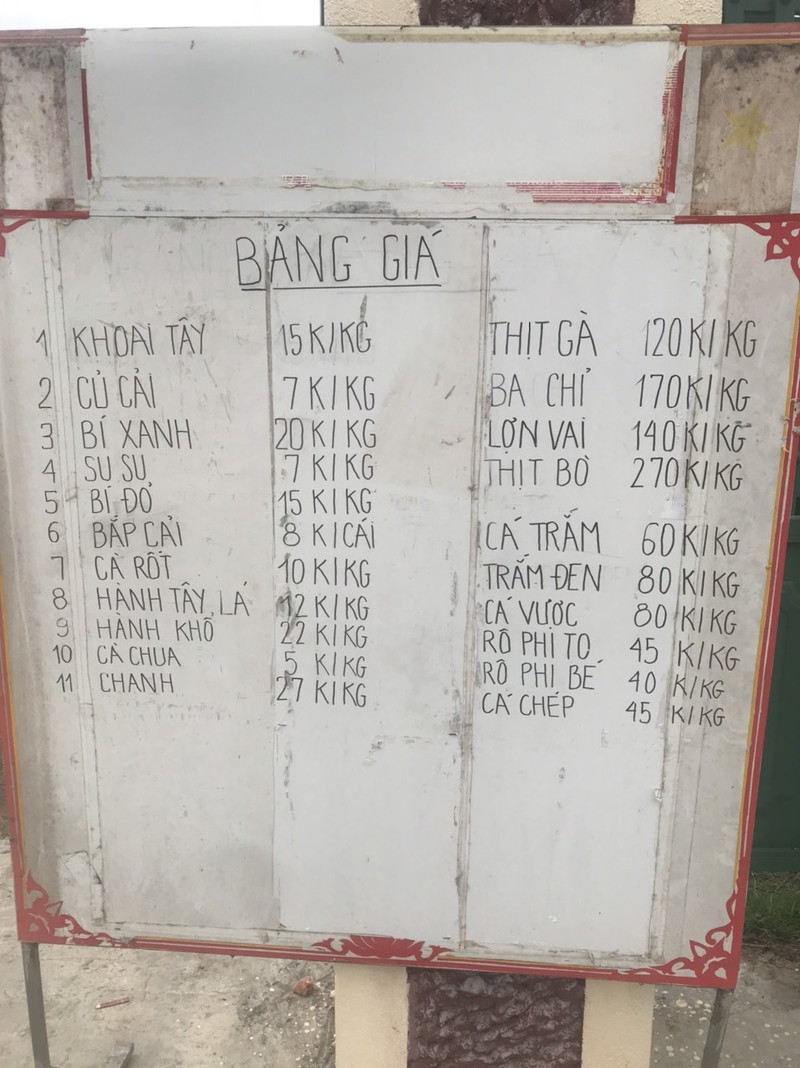 BẢNG GIÁ
1 KHOAI TÂY 15 K/KG
2 CỦ CẢI 7 K/KG
3 BÍ XANH 20 K/KG
4 SU SU 7 K/KG
5 BÍ ĐỎ 15 K/KG
6 BẮP CẢI 8 K/CÁI
7 CÀ RỐT 10 K/KG
8 HÀNH TÂY, LÁ 12 K/KG
9 HÀNH KHÔ 22 K/KG
10 CÀ CHUA 5 K/KG
11 CHANH 27 K/KG
THỊT GÀ 120K/KG
BA CHỈ 170K/KG
LỢN VAI 140K/KG
THỊT BÒ 270K/KG
CÁ TRẮM 60K/KG
TRẮM ĐEN 80K/KG
CÁ VƯỢC 80 K/KG
RÔ PHI TO 45 K/KG
RÔ PHI BÉ 40 K/KG
CÁ CHÉP 45 K/KG